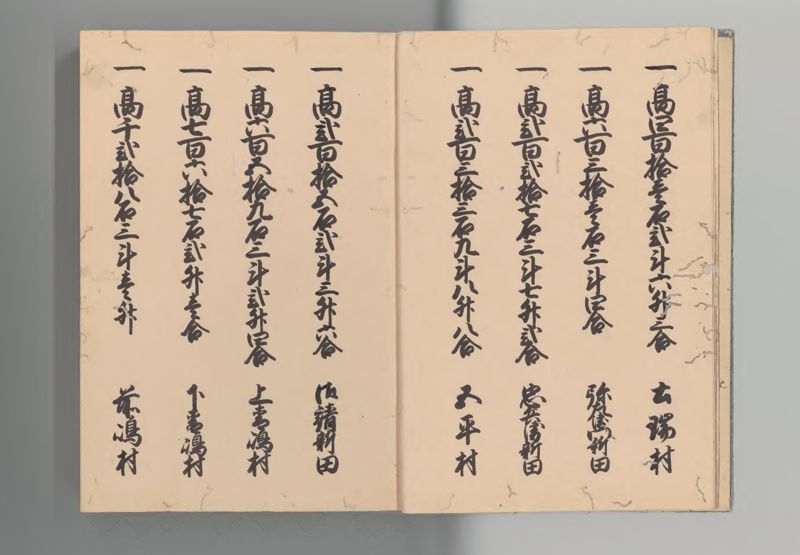 一高四百拾壱石弐斗六升三合 古瑞村
一高六百三拾壱石三斗四合 新田
一高弐百弐拾七石三斗七升弐合 忠兵衛新田
一高弐百三拾三石九斗八升八合 又平村
一高弐百拾五石弐斗三升六合 請新田
一高六百五拾九石三斗弐升四合 上青嶋村
一高七百六拾七石弐升壱合 下青嶋村
一高千弐拾八石三斗壱升 前嶋村